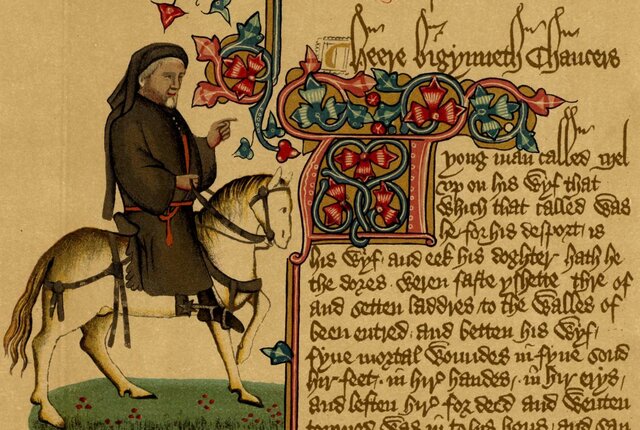 Heere bigynneth Chaucers
A
yong man called mel
vp on his wyf that
which that called was
he for his desport is
his wyf and eek his doghter hath he
the dores weren faste yshette thre of
and setten laddres to the walles of
been entred and betten his wyf
fyue mortal woundes in fyue sond
hir feet in hir handes in hir erys
and leften hir for deed and wenten
torned was in to his hous and sau